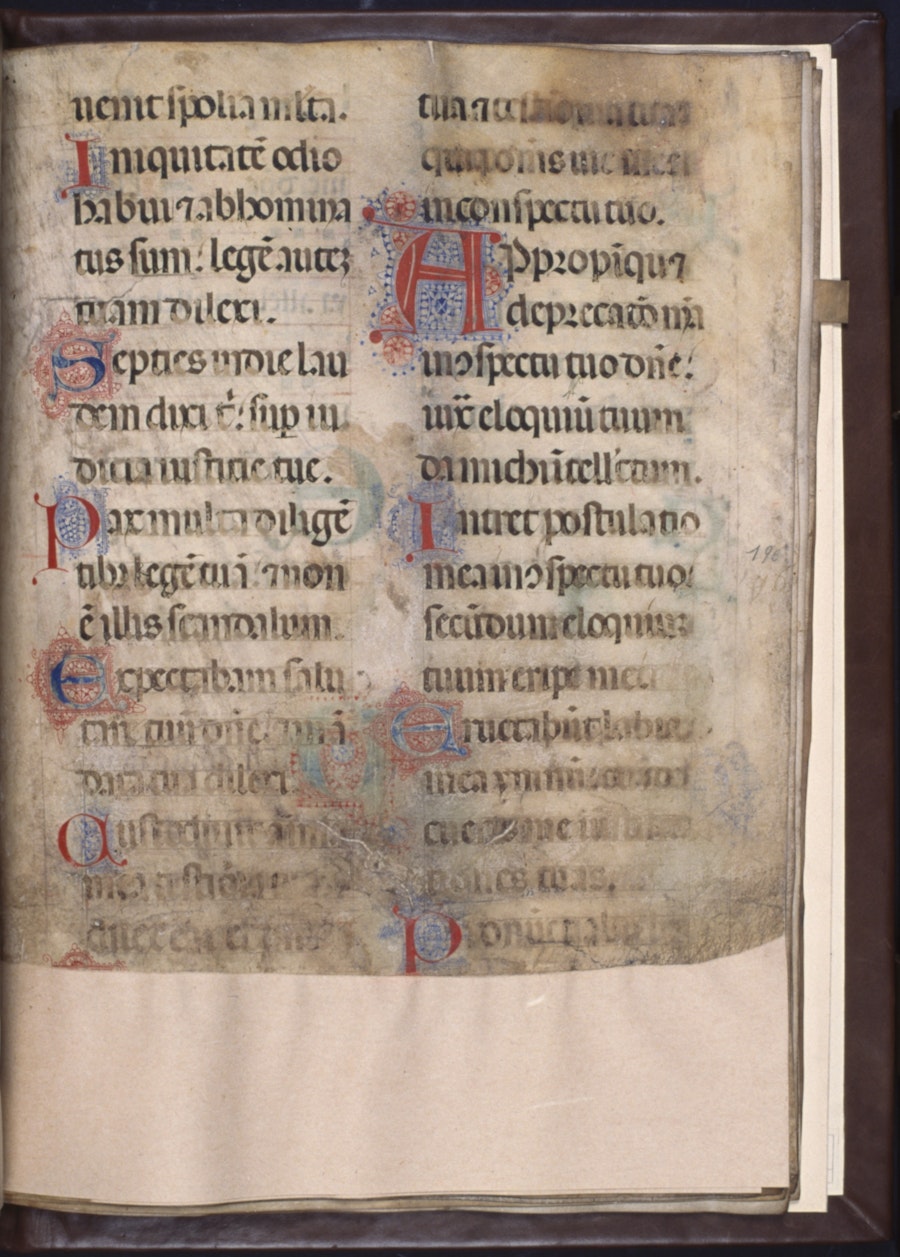 uenit spolia mlta.
Iniquitatē odio
habui ⁊ abhomina
tus sum: legē autēʒ
tuam dilexi.
Septies ı̄ die lau
dem dixi t̄: suꝑ iu
dicia iusticie tue.
Pax multa diligē
tibꝫ legē tuā: ⁊ non
ē illis scandalum.
Expectabam salu
tar̄ tuū dn̄e: ⁊ mā
data tua dilexi.
Custodiuit aīa
mea
dilexit ea
tua ⁊
quia om̄s uie mee
in conspectu tuo.
Appropīquꝫ
deprecatō mā
in ꝯspectu tuo dn̄e:
iux̄ eloquiū tuum
da michi ītellectum.
Intret postulatio
mea in ꝯspectu tuo:
secūdum eloquium
tuum eripe me.
Eructabūt labia
mea ymnū:
cum docueris
tiōnes tuas.
Pronūciabit
196